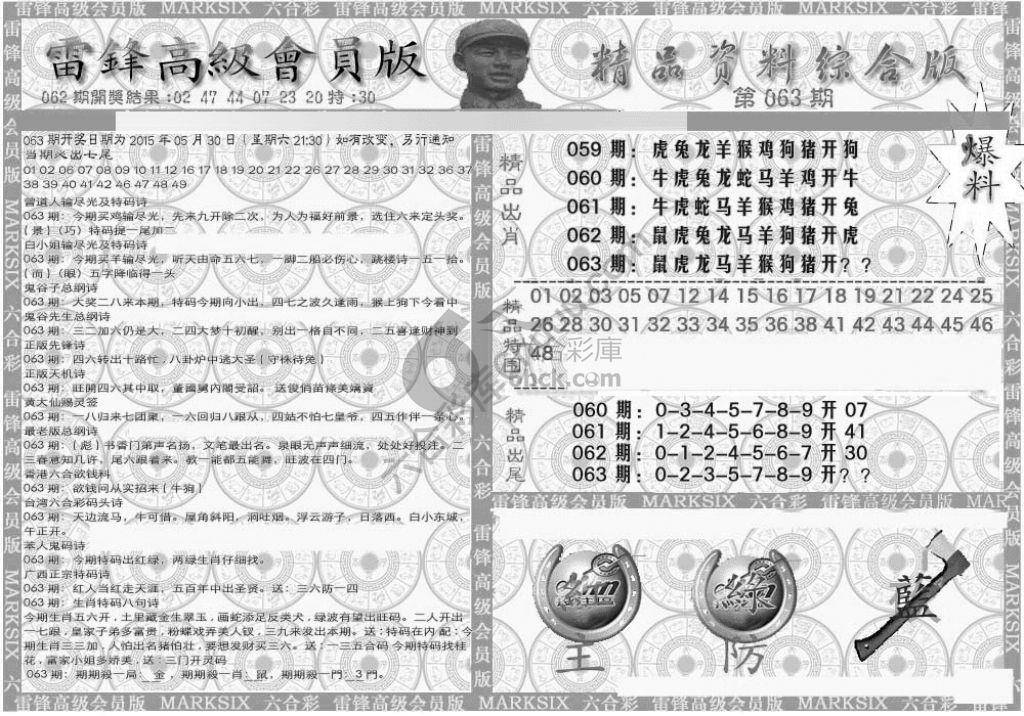 雷锋高级会员版 MARKSIX 六合彩 雷锋高级会员版 MARKSIX 六合彩 雷锋高级会员版
雷鋒高級會員版
精品资料综合版
062期開獎結果:02 47 44 07 23 20特:30
第063期
063期开奖日期为2015年05月30日(星期六21:30)如有改变,另行通知
当期必出七尾
01 02 06 07 08 09 10 11 12 16 17 18 19 20 21 22 26 27 28 29 30 31 32 36 37
38 39 40 41 42 46 47 48 49
曾道人输尽光及特码诗
063期:今期买鸡输尽光,先来九开除二次,为人为福好前景,选住六来定头奖。
{景}(巧)特码提一尾加二
白小姐输尽光及特码诗
063期:今期买羊输尽光,听天由命五六七,一脚二船必伤心,跳楼诗一五一拾。
{而}(眼)五字降临得一头
鬼谷子总纲诗
063期:大奖二八来本期,特码今期向小出,四七之波久逢雨,猴上狗下今看中
鬼谷先生总纲诗
063期:三二加六仍是大,二四大梦十初醒,别出一格自不同,二五喜逢财神到
正版先锋诗
063期:四六转出十路忙,八卦炉中逃大圣{守株待兔}
正版天机诗
063期:旺開四六其中取,董國舅内閣受詔。送俊俏苗條美嬌資
黄大仙赐灵签
063期:一八归来七团聚,一六回归八跟从,四姑不怕七皇爷,四五作伴一条心。
最老版总纲诗
063期:{彪}书香门第声名扬,文笔最出名。泉眼无声声细流,处处好投注。二
三春意知几许,尾六跟着来。教一能都五能舞,旺波在四门。
香港六合欲钱料
063期:欲钱问从实招来{牛狗}
台湾六合彩码头诗
063期:天边流马,牛可借。屋角斜阳,洞吐烟。浮云游子,日落西。白小东城,
午正开。
苯人鬼码诗
063期:今期特码出红绿,两绿生肖仔细找。
广西正宗特码诗
063期:红人当红走天涯,五百年中出圣贤。送:三六防一四
063期:生肖特码八句诗
今期生肖五六开,土里藏金生翠玉,画蛇添足反类犬,绿波有望出旺码。二人开出
一七跟,皇家子弟多富贵,粉蝶戏弄美人钗,三九来发出本期。送:特码在内配:今
今期生肖三三加,人怕出名猪怕壮,要想发财买三六。送:一三五合码 今期特码找桂
花,富家小姐多娇美,送:三门开灵码
063期:期期殺一局:金,期期殺一肖:鼠,期期殺一門:3門。
精品出肖
059期:虎兔龙羊猴鸡狗猪开狗
060期:牛虎兔龙蛇马羊鸡开牛
061期:牛虎蛇马羊猴鸡猪开兔
062期:鼠虎兔龙马羊狗猪开虎
063期:鼠虎龙马羊猴狗猪开??
爆料
精品特围
01 02 03 05 07 12 14 15 17 18 19 21 22 24 25
26 28 30 31 32 33 34 35 36 38 41 42 43 45 46
48
六合彩庫
精品出尾
060期:0-3-4-5-7-8-9开07
061期:1-2-4-5-6-8-9开41
062期:0-1-2-4-5-6-7开30
063期:0-2-3-5-7-8-9开??
雷锋高级会员版 MARKSIX 六合彩 雷锋高级会员版 MARK
綠
藍
主
防
雷锋高级会员版 MARKSIX 六合彩 雷锋高级会员版 MARKSIX 六合彩 雷锋高级会员版